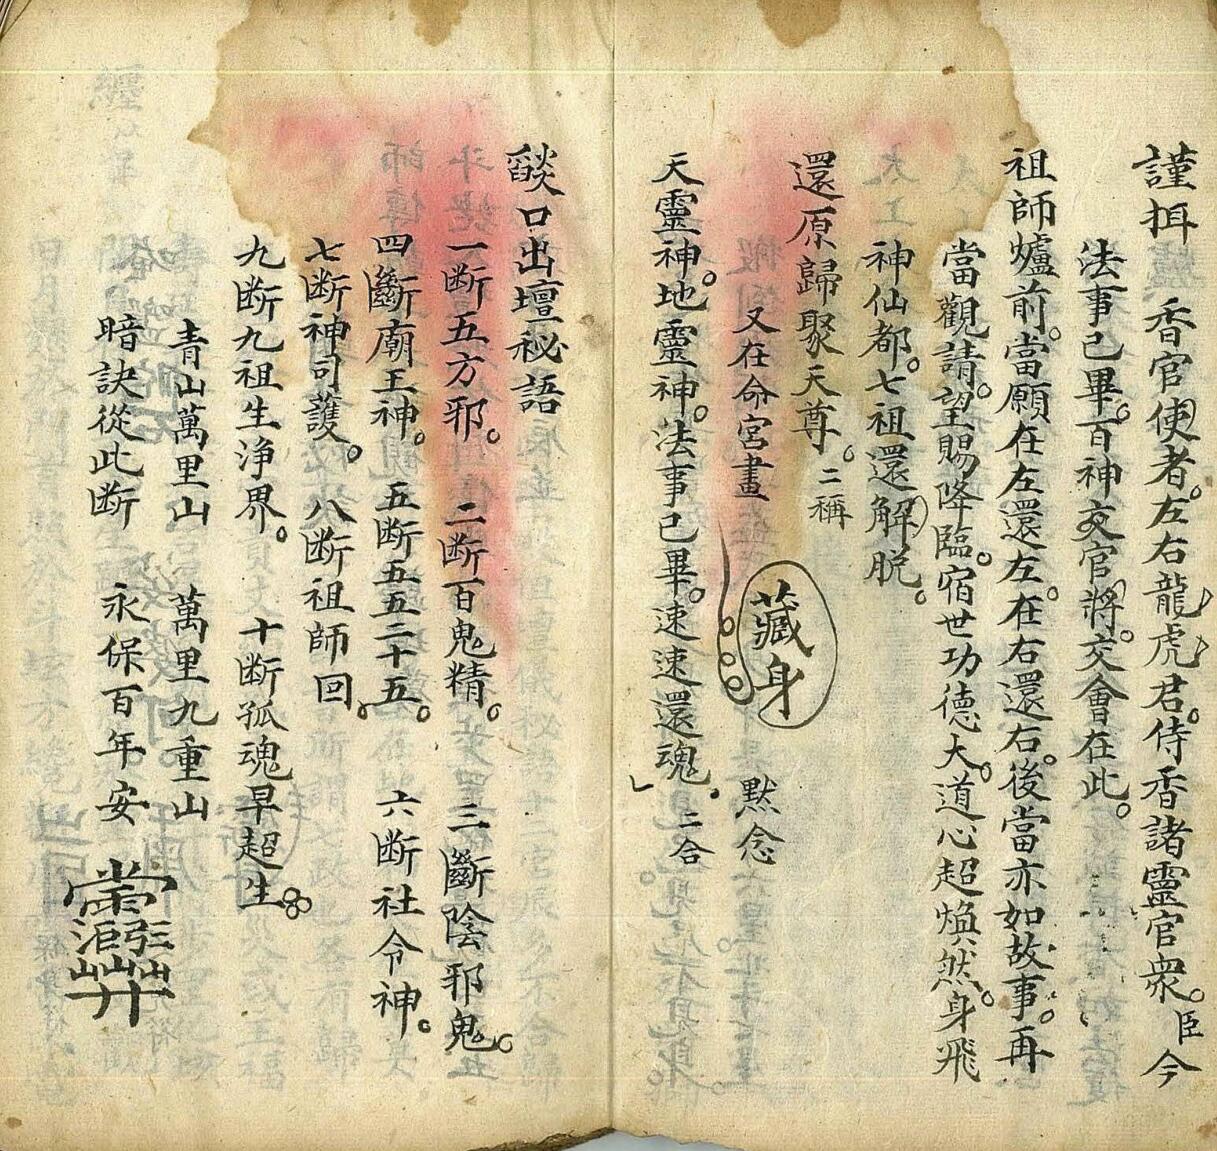 謹㧅　香官使者。左右龍虎君。侍香諸靈官衆。臣今
法事已畢。百神交官將。交會在此。
祖師爐前。當願在左還左。在右還右。後當亦如故事。再
當觀請。望賜降臨。宿世功德大。道心超煥然。身飛
神仙都。七祖還解脱。
還原歸聚天尊。二稱
又在命宮畫　藏身　默念
天靈神。地靈神。法事已畢。速速還魂。二合
餤口出壇秘語
一断五方邪。　二断百鬼精。　三斷陰邪鬼。
四斷廟王神。　五断五五二十五。　六断社令神。
七断神司護。　八断祖師回。
九断九祖生浄界。　十断孤魂早超生。
青山萬里山　萬里九重山
暗訣從此断　永保百年安